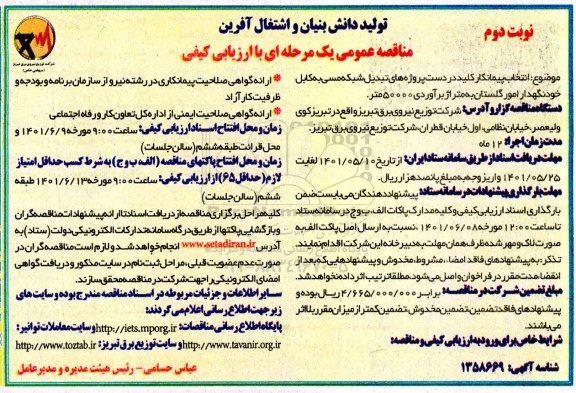 تولید دانش بنیان و اشتغال آفرین
نوبت دوم
مناقصه عمومی یک مرحله ای با ارزیابی کیفی
شرکت توزیع نیروی برق تبریز
(سهامی خاص)
موضوع: انتخاب پیمانکار کلید در دست پروژه های تبدیل شبکه مسی به کابل
خودنگهدار امور گلستان به متراژ برآوردی ۵۰۰۰۰ متر.
دستگاه مناقصه گزار و آدرس: شرکت توزیع نیروی برق تبریز واقع در تبریز کوی
ولیعصر، خیابان نظامی، اول خیابان قطران، شرکت توزیع نیروی برق تبریز.
مدت زمان اجرا: ۱۲ ماه
مهلت دریافت اسناد از طریق سامانه ستاد ایران: از تاریخ ۱۴۰۱/۰۵/۱۰ لغایت
۱۴۰۱/۰۵/۲۵ واریز وجه به مبلغ پانصد هزار ریال.
مهلت بارگذاری پیشنهادات در سامانه ستاد: پیشنهاد دهندگان می بایست ضمن
بارگذاری اسناد ارزیابی کیفی و کلیه مدارک پاکات الف، ب و ج در سامانه ستاد
تا ساعت ۱۲:۰۰ مورخه ۱۴۰۱/۰۶/۰۸، نسبت به ارسال اصل پاکت الف به
صورت لاک و مهر شده ظرف همان مهلت به دبیرخانه این شرکت اقدام نمایند.
تذکر: به پیشنهاد های فاقد امضاء، مشروط، مخدوش و پیشنهادهایی که بعد از
انقضاء مدت مقرر در فراخوان واصل می شود، مطلقا ترتیب اثر داده نخواهد شد.
مبلغ تضمین شرکت در مناقصه: برابر ۴/۶۶۵/۰۰۰/۰۰۰ ریال بوده و
پیشنهادهای فاقد تضمین، تضمین مخدوش، تضمین کمتر از میزان مقرر بلااثر
می باشند.
شرایط خاص برای ورود به ارزیابی کیفی و مناقصه:
شناسه آگهی: ۱۳۵۸۶۶۹
* ارائه گواهی صلاحیت پیمانکاری در رشته نیرو از سازمان برنامه و بودجه و
ظرفیت کار آزاد
* ارائه گواهی صلاحیت ایمنی از اداره کل تعاون کار و رفاه اجتماعی
زمان و محل افتتاح اسناد ارزیابی کیفی: ساعت ۹:۰۰ مورخه ۱۴۰۱/۶/۹ و
محل قرائت طبقه ششم (سالن جلسات)
زمان و محل افتتاح پاکتهای مناقصه (الف ب و ج) به شرط کسب حداقل امتیاز
لازم (حداقل ۶۵) از ارزیابی کیفی: ساعت ۹:۰۰ مورخه ۱۴۰۱/۶/۱۳ طبقه
ششم (سالن جلسات)
کلیه مراحل برگزاری مناقصه از دریافت اسناد تا ارائه پیشنهادات مناقصه گران
و بازگشایی پاکتها از طریق درگاه سامانه تدارکات الکترونیکی دولت (ستاد) به
آدرس www.setadiran.ir انجام خواهد شد و لازم است مناقصه گران در
صورت عدم عضویت قبلی، مراحل ثبت نام در سایت مذکور و دریافت گواهی
امضای الکترونیکی را جهت شرکت در مناقصه محقق سازند.
سایر اطلاعات و جزئیات مربوطه در اسناد مناقصه مندرج بوده و سایت های
زیر جهت اطلاع رسانی اعلام می گردند:
پایگاه اطلاع رسانی مناقصات: http://iets.mporg.ir و سایت معاملات توانیر:
http://www.tavanir.org.ir و سایت توزیع برق تبریز: http://www.toztab.ir
عباس حسامی - رئیس هیئت مدیره و مدیرعامل